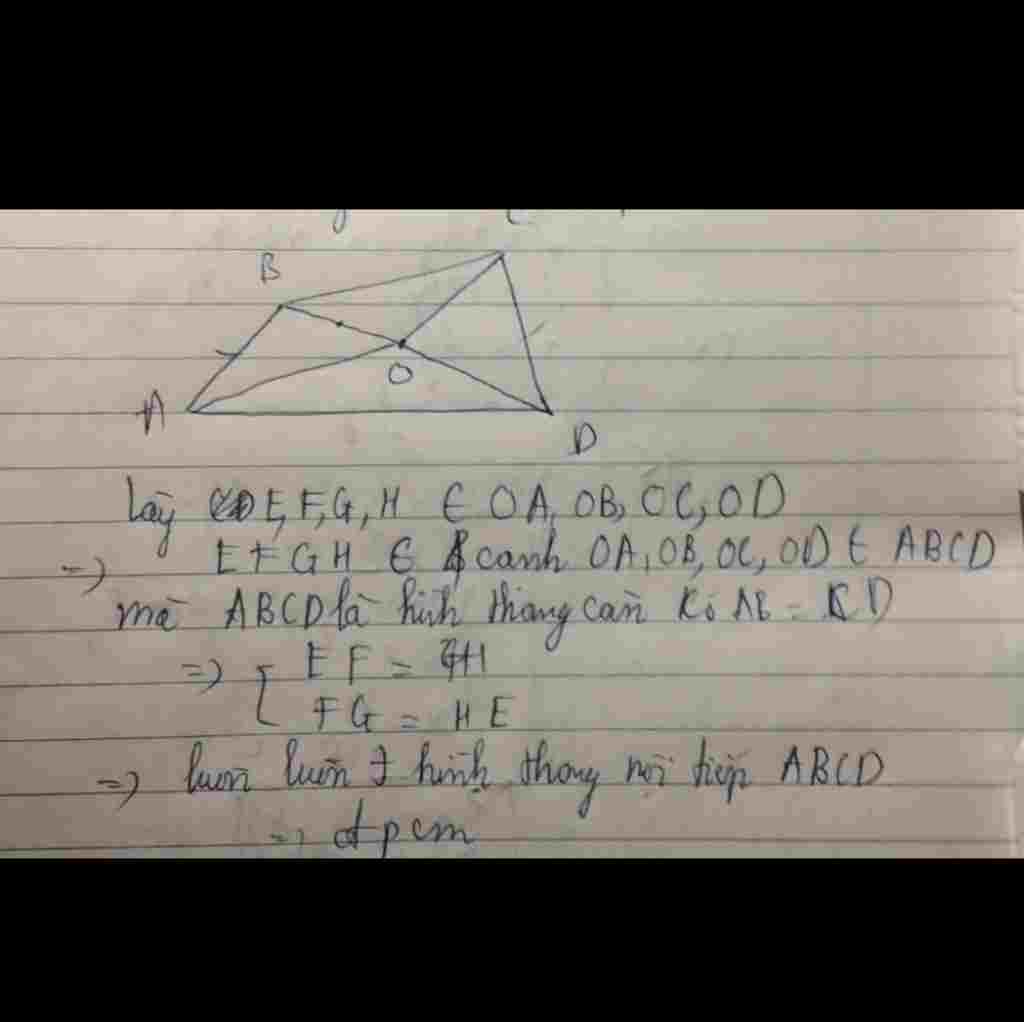 B
O
A
D
lấy E, F, G, H ∈ OA, OB, OC, OD
=) E F G H ∈ cạnh OA, OB, OC, OD ∈ ABCD
mà ABCD là hình thang cân AB = CD
=) { EF = GH
FG = HE
=) luôn luôn ∃ hình thang nội tiếp ABCD
=) đpcm